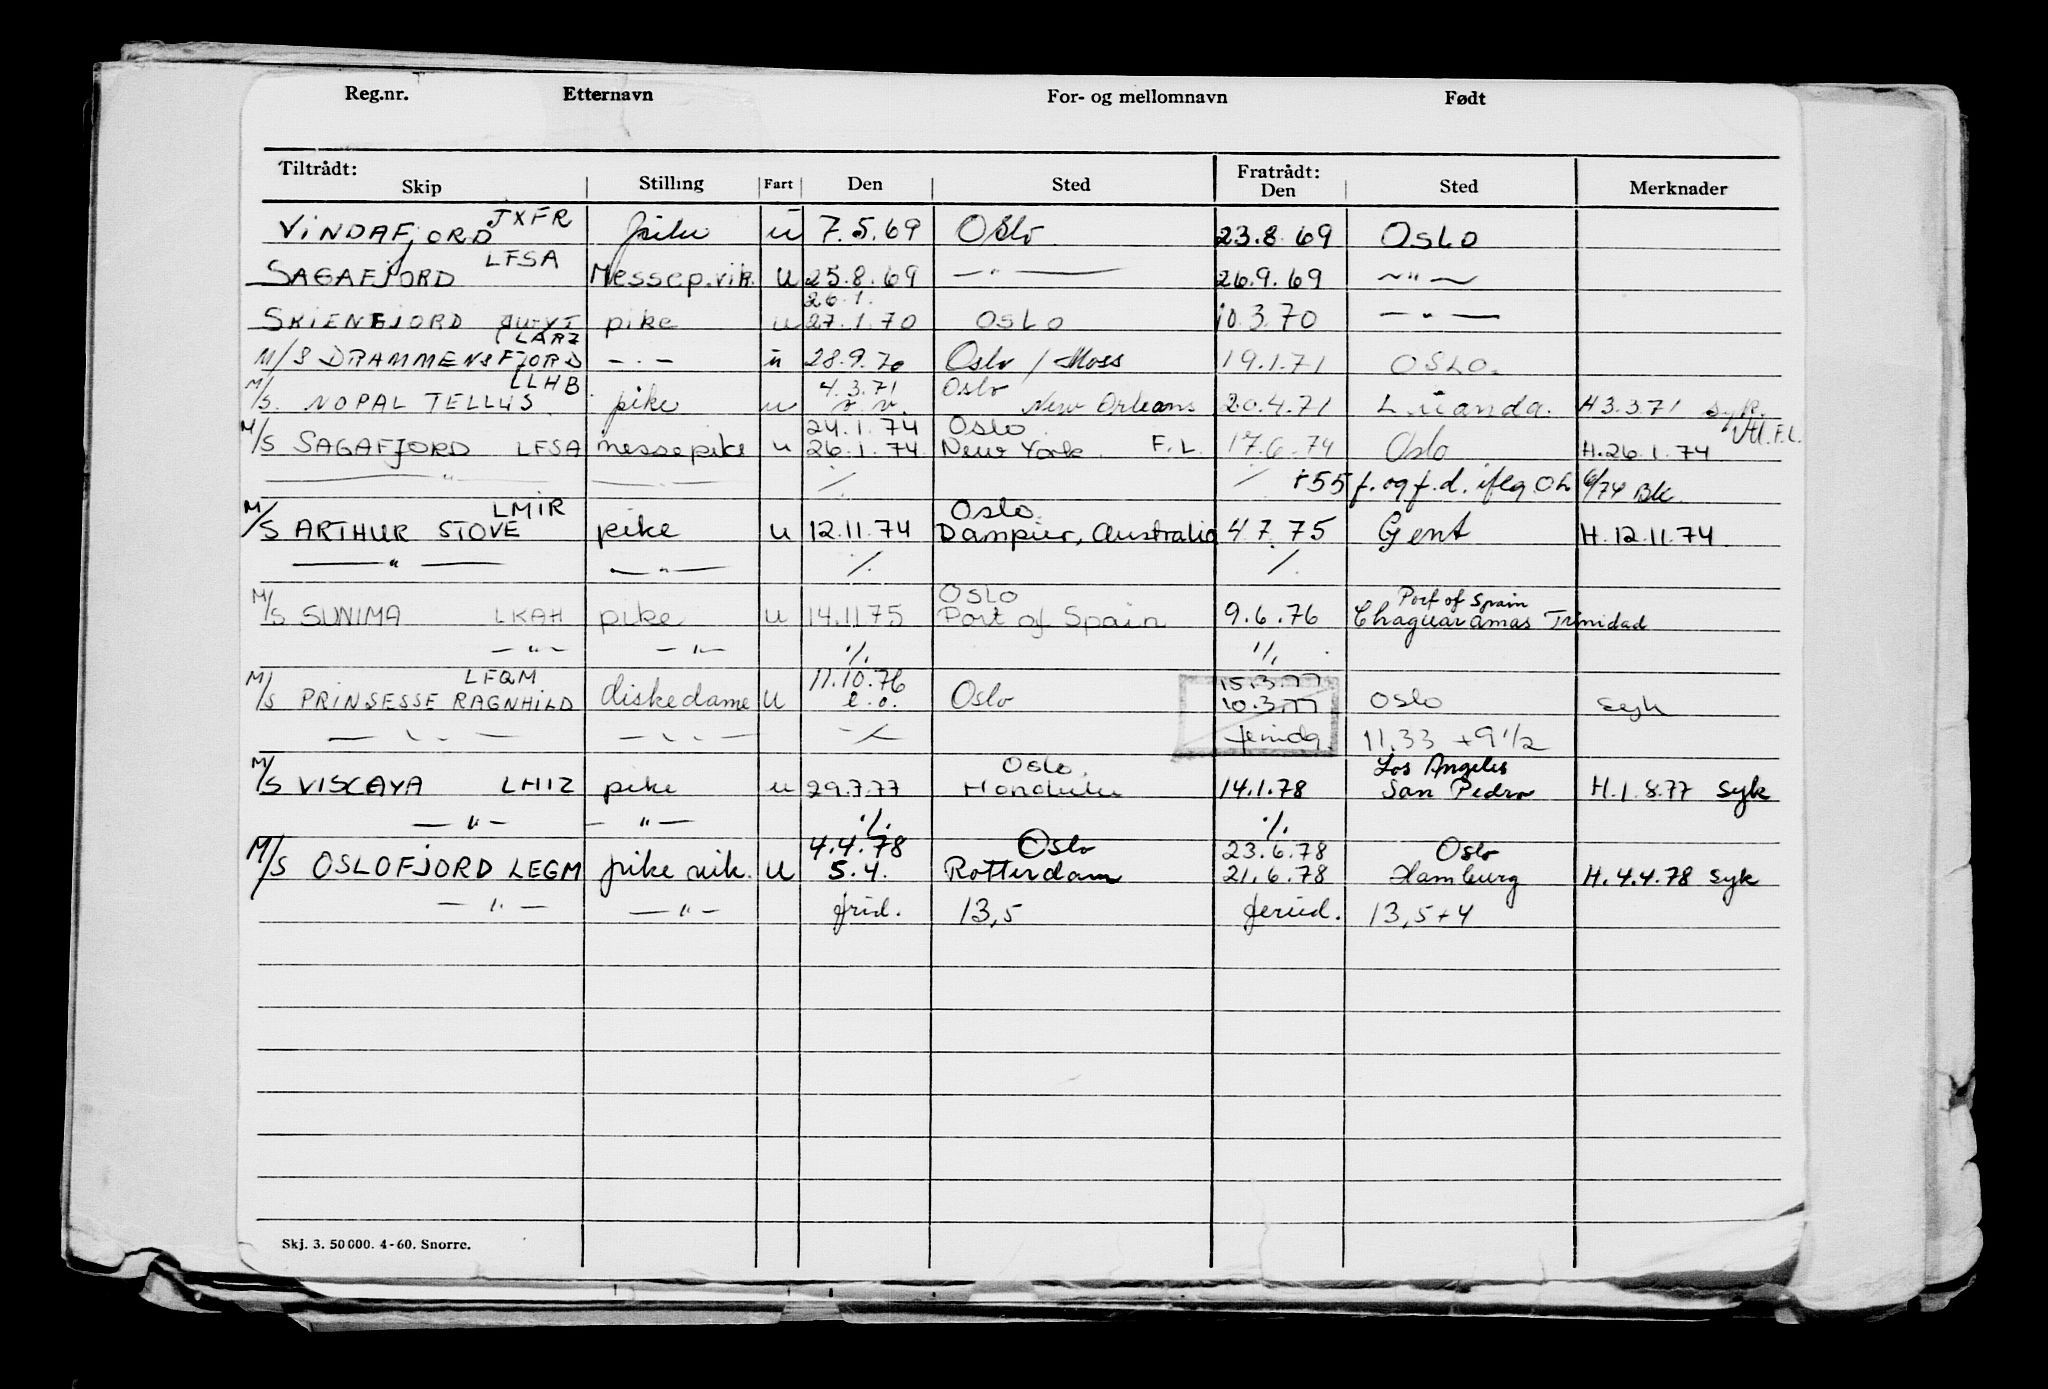 Reg.nr. Etternavn For- og mellomnavn Født
Tiltrådt: Fratrådt:
Skip Stilling Fart Den Sted Den Sted Merknader
JXFR
VINDAFJORD pike u 7.5.69 Oslo 23.8.69 OSLO
LFSA
SAGAFJORD Messep.vik. u 25.8.69 — " — 26.9.69 — " —
26.1.
SKIENFJORD pike u 27.1.70 OSLO 10.3.70 — " —
LARZ
M/S DRAMMENSFJORD — . — u 28.9.70 Oslo / Moss 19.1.71 OSLO.
LLHB 4.3.71 Oslo
M/S. NOPAL TELLUS. pike u New Orleans 20.4.71 Luanda. H 3.3.71 syk.
24.1.74 Oslo F.L.
M/S SAGAFJORD LFSA messepike u 26.1.74 New York F.L. 17.6.74 Oslo H.26.1.74
— " — — . — ./. ./. +55 f. og f.d. iflg. 6/74 Bk
LMIR Oslo.
M/S ARTHUR STOVE pike u 12.11.74 Dampier, Australia 4.7.75 Gent H.12.11.74
— " — — " — ./. ./.
OSLO Port of Spain
M/S SUNIMA LKAH pike u 14.11.75 Port of Spain 9.6.76 Chaguaramas Trinidad
— " — — " — ./. ./.
LFQM 11.10.76 15.3.77
M/S PRINSESSE RAGNHILD diskedame u e.o. Oslo 10.3.77 OSLO syk
— " — — " — ./. 11.33 + 9 1/2
Oslo. Los Angeles
M/S VISCAYA LHIZ pike u 29.7.77 Honolulu 14.1.78 San Pedro H.1.8.77 syk
— " — — " — ./. ./.
4.4.78 Oslo 23.6.78 Oslo
M/S OSLOFJORD LEGM pike vik. u 5.4. Rotterdam 21.6.78 Hamburg H.4.4.78 syk
— " — — " — 13,5 13,5+4
Skj. 3. 50000. 4-60. Snorre.